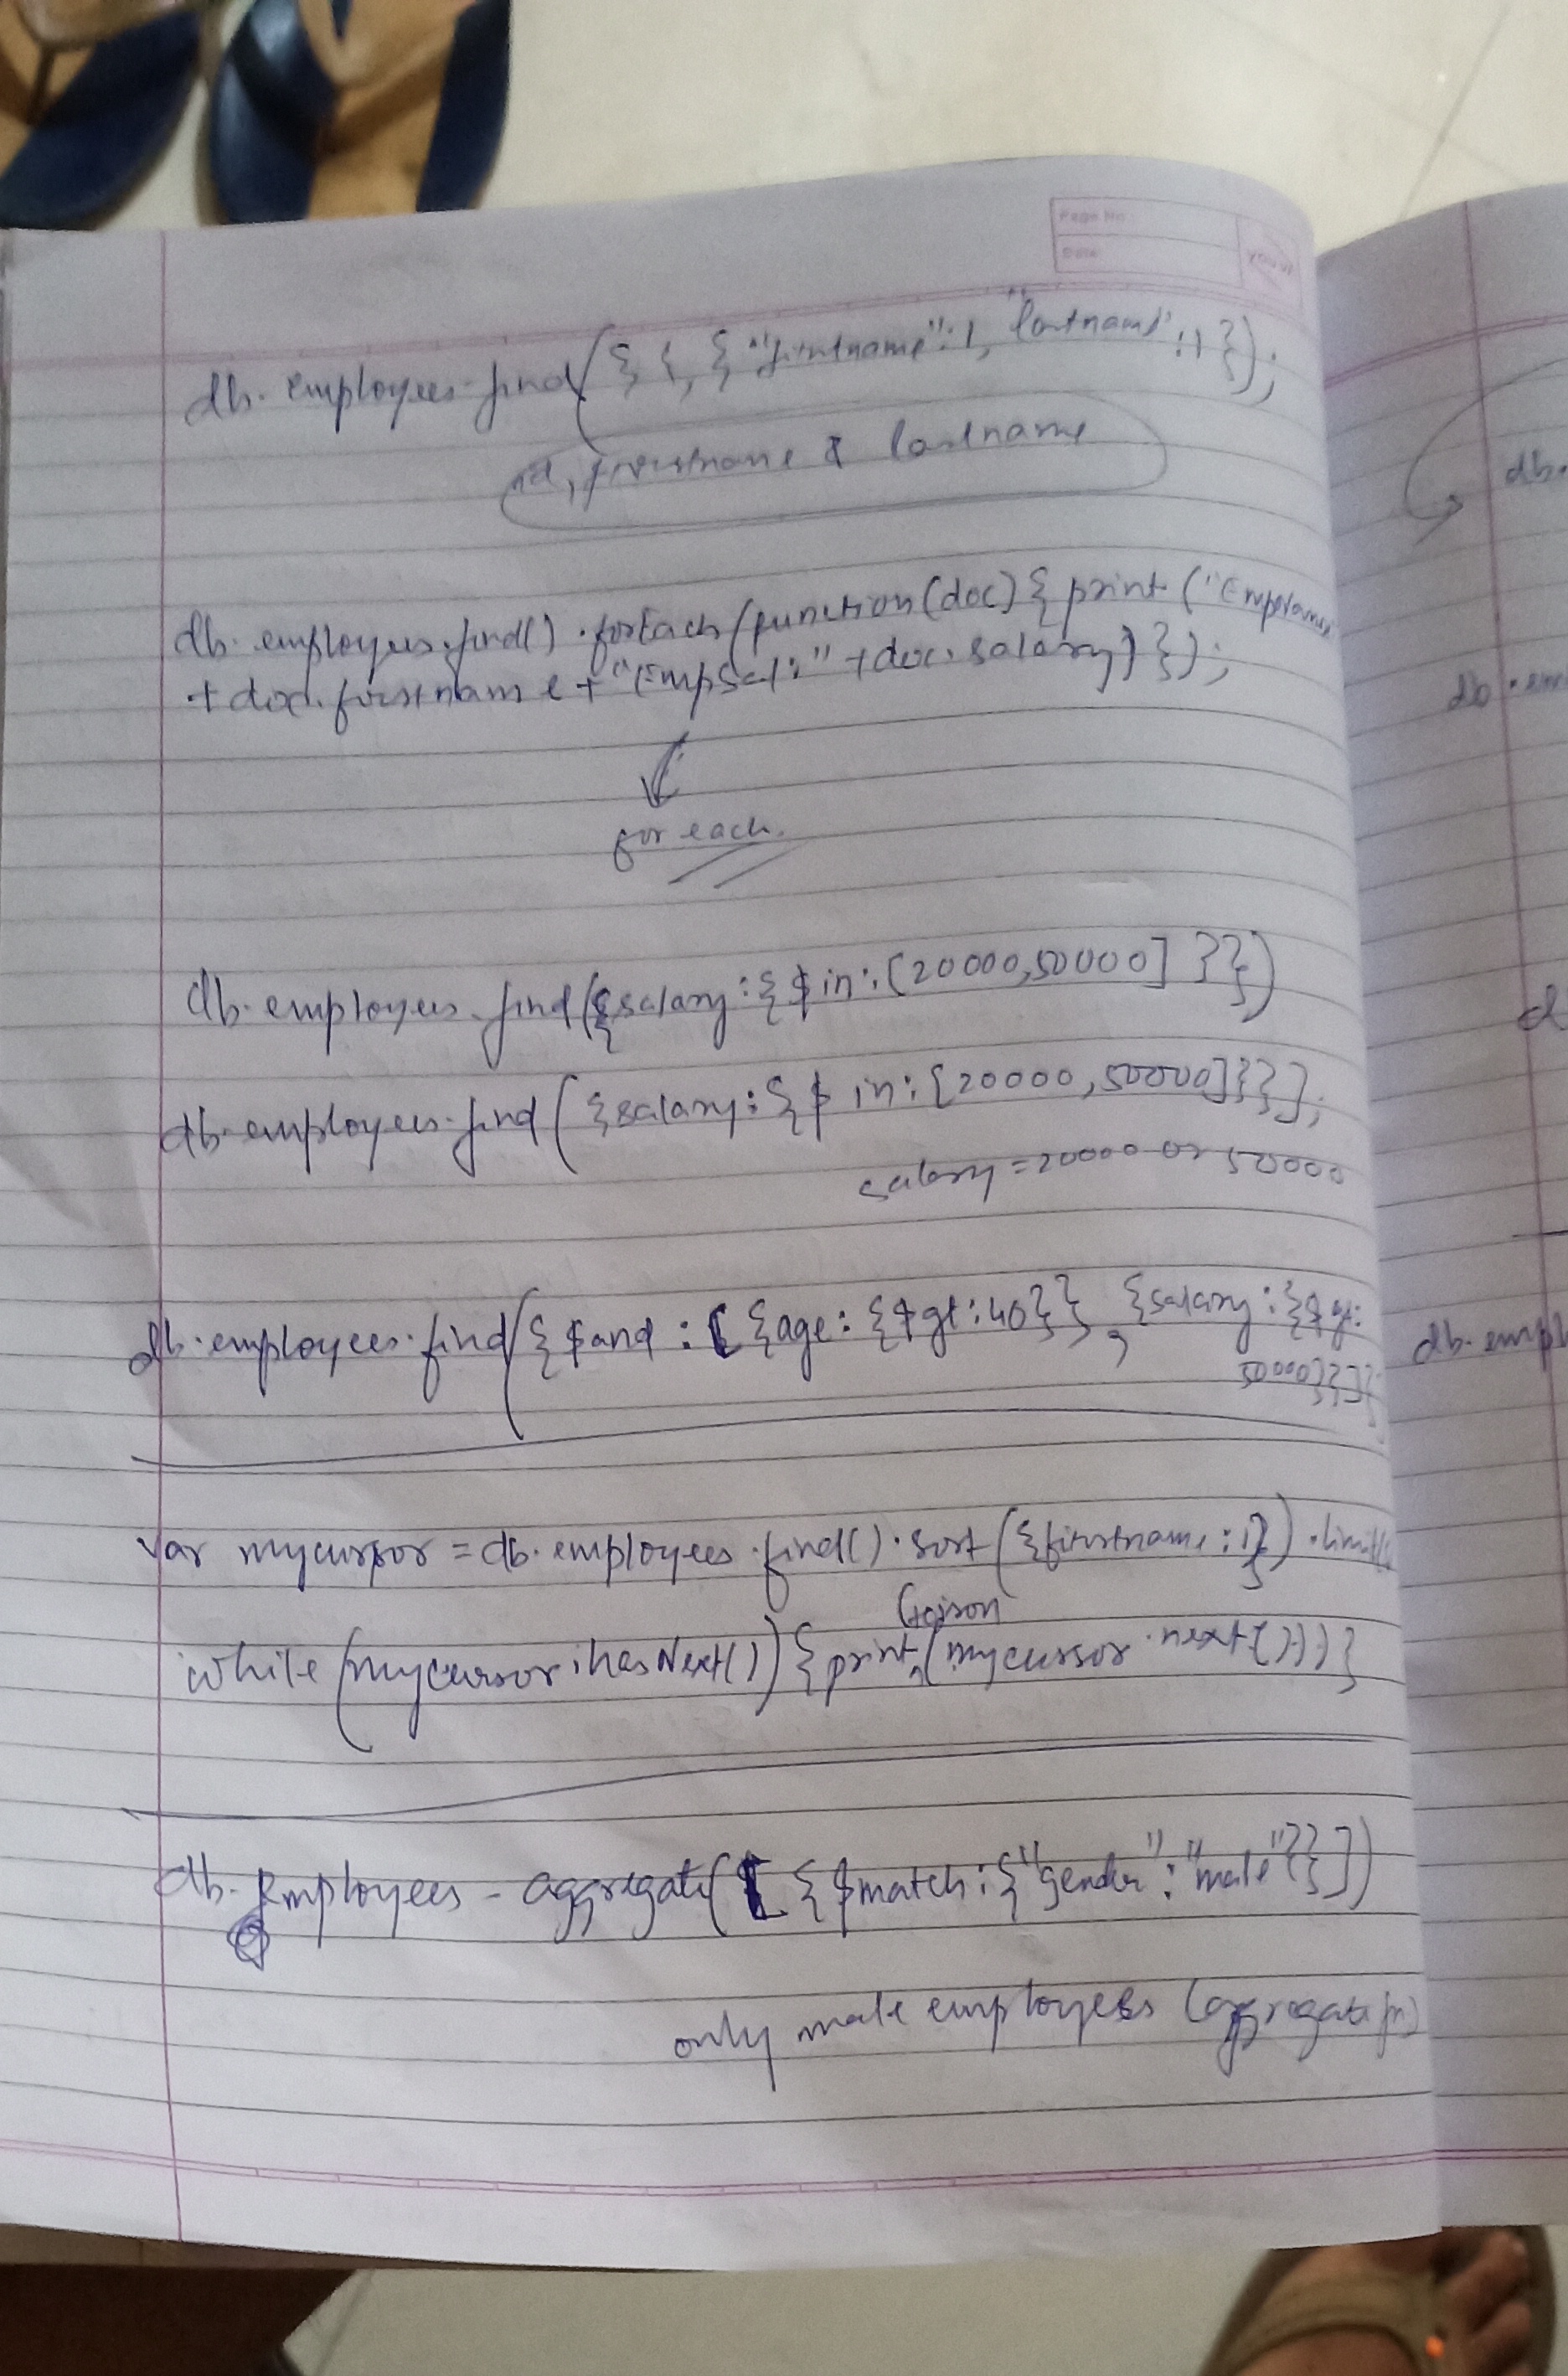 Page No.:
Date:
db.employees.find({ }, { "firstname":1, "lastname":1 });
id, firstname & lastname
db.employees.find().forEach(function(doc){ print("Empname
+doc.firstname+"EmpSal:"+doc.salary) });
for each.
db.employees.find({salary:{$in:[20000,50000] }})
db.employees.find({salary:{$ in:[20000,50000]}}];
salary=20000 or 50000
db.employees.find({$and:[{age:{$gt:40}}, {salary:{$gt:
50000}}]}
var mycursor = db.employees.find().sort({firstname:1}).limit(
while(mycursor.hasNext()){printtojson(mycursor.next())}
db.employees-aggregate([{$match:{"gender":"male"}}])
only male employees (aggregate fn)
db.
db.em
d
db.empl